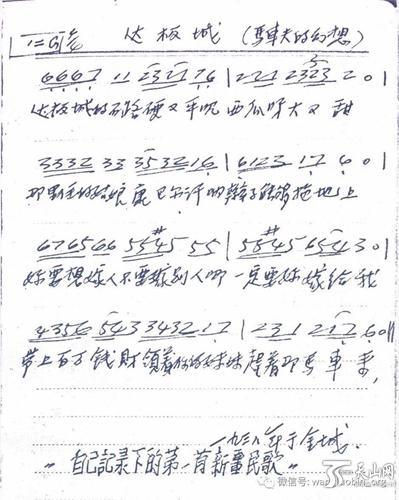 1=G 4/4 达板城 (马车夫的幻想)
6667 11 2321 76 | 221 2323 2 0 |
达板城的石路硬又平呢 西瓜呀大又甜
3332 33 353216 | 6123 17 6 0 |
那里的姑娘康巴尔汗呐辫子 拖地上
676566 5545 55 | 5545 6543 0 |
你要想嫁人不要嫁别人哪 一定要你嫁给我
4356 543 3432 17 | 231 217 60 ||
带上百万钱财领着你的妹妹赶着那马车来,
一九三八年于金城.
"自己记录下的第一首新疆民歌"
天山网
微信号: wangluobin_org